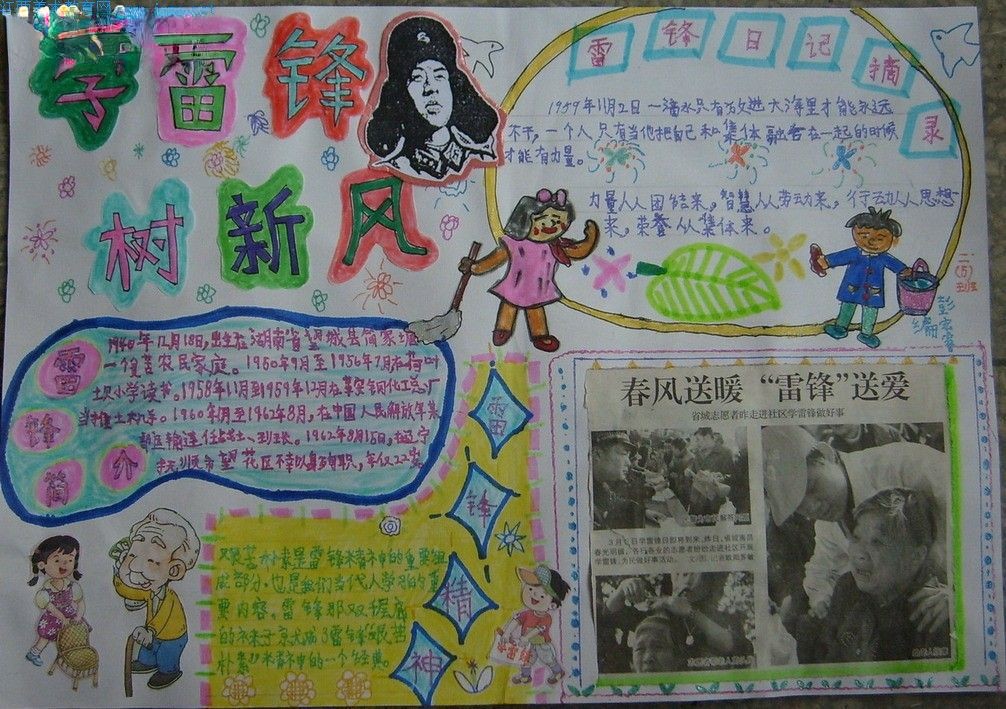 学雷锋
树新风
雷锋日记摘录
1959年11月2日 一滴水只有放进大海里才能永远
不干，一个人只有当他把自己和集体融合在一起的时候
才能有力量。
力量从团结来，智慧从劳动来，行动从思想
来，荣誉从集体来。
二(5)班
编
雷锋简介
1940年12月18日，出生在湖南省望城县简家
一个贫苦农民家庭。1950年9月至1956年7月在荷叶
坝小学读书。1958年11月到1959年12月在鞍钢化工厂
当推土机手。1960年 月至1962年8月，在中国人民解放军某
部运输连任战士、班长。1962年8月15日，在辽宁
抚顺市望花区不幸以身殉职，年仅22岁
雷锋精神
艰苦朴素是雷锋精神的重要组
成部分，也是我们当代人学习的重
要内容，雷锋那双缝底
的袜子
朴素 精神中的一个经典。
学雷锋
春风送暖 “雷锋”送爱
省城志愿者昨走进社区学雷锋做好事
3月5日学雷锋日即将到来，昨日，省城南昌
春光明媚，各行各业的志愿者纷纷走进社区开展
学雷锋、为民做好事活动。